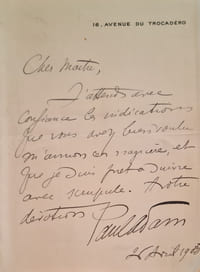 16, AVENUE DU TROCADÉRO
Cher Maître,
J'attends avec
confiance les indications
que vous avez bien voulu
m'annoncer naguère, et
que je suis prêt à suivre
avec scrupule. A votre
dévotion
Paul Adam
26 Avril